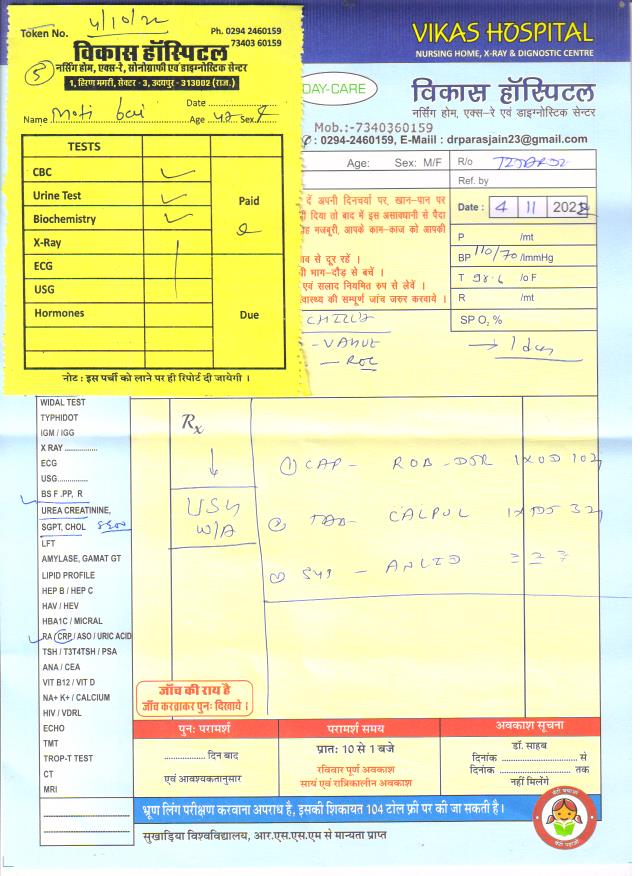 4/10/22
Token No.
Ph. 0294 2460159
73403 60159
विकास हॉस्पिटल
5
नर्सिंग होम, एक्स-रे, सोनोग्राफी एवं डाइग्नोस्टिक सेन्टर
1, हिरण मगरी, सेक्टर - 3, उदयपुर - 313002 (राज.)
Date
Name Moti bai Age 42 Sex. F
TESTS
CBC
Urine Test
Biochemistry
X-Ray
ECG
USG
Hormones
Paid
Due
नोट : इस पर्ची को लाने पर ही रिपोर्ट दी जायेगी ।
VIKAS HOSPITAL
NURSING HOME, X-RAY & DIGNOSTIC CENTRE
DAY-CARE
विकास हॉस्पिटल
नर्सिंग होम, एक्स-रे एवं डाइग्नोस्टिक सेन्टर
Mob.:-7340360159
: 0294-2460159, E-Maiil : drparasjain23@gmail.com
Age: Sex: M/F
R/o
Ref. by
Date : 4 11 2022
दें अपनी दिनचर्या पर, खान-पान पर
दिया तो बाद में इस असावधानी से पैदा
मजबूरी, आपके काम-काज को आपकी
व से दूर रहें ।
भाग-दौड़ से बचें ।
एवं सलाद नियमित रुप से लेवें ।
स्वास्थ्य की सम्पूर्ण जांच जरुर करवाये ।
P /mt
BP 110/70 /lmmHg
T 98.6 /o F
R /mt
SP O2 %
WIDAL TEST
TYPHIDOT
IGM / IGG
X RAY
ECG
USG
BS F .PP, R
UREA CREATININE,
SGPT, CHOL
LFT
AMYLASE, GAMAT GT
LIPID PROFILE
HEP B / HEP C
HAV / HEV
HBA1C / MICRAL
RA / CRP / ASO / URIC ACID
TSH / T3T4TSH / PSA
ANA / CEA
VIT B12 / VIT D
NA+ K+ / CALCIUM
HIV / VDRL
ECHO
TMT
TROP-T TEST
CT
MRI
Rx
USG
W/A
1 CAP - ROB-DSR 1XOD
2 TAB- CALPOL
3 SYP -
जाँच की राय है
जाँच करवाकर पुनः दिखाये ।
पुनः परामर्श
दिन बाद
एवं आवश्यकतानुसार
परामर्श समय
प्रातः 10 से 1 बजे
रविवार पूर्ण अवकाश
सायं एवं रात्रिकालीन अवकाश
अवकाश सूचना
डॉ. साहब
दिनांक से
दिनांक तक
नहीं मिलेंगे
भ्रूण लिंग परीक्षण करवाना अपराध है, इसकी शिकायत 104 टोल फ्री पर की जा सकती है।
सुखाड़िया विश्वविद्यालय, आर.एस.एस.एम से मान्यता प्राप्त
बेटी बचाओ
बेटी पढ़ाओ